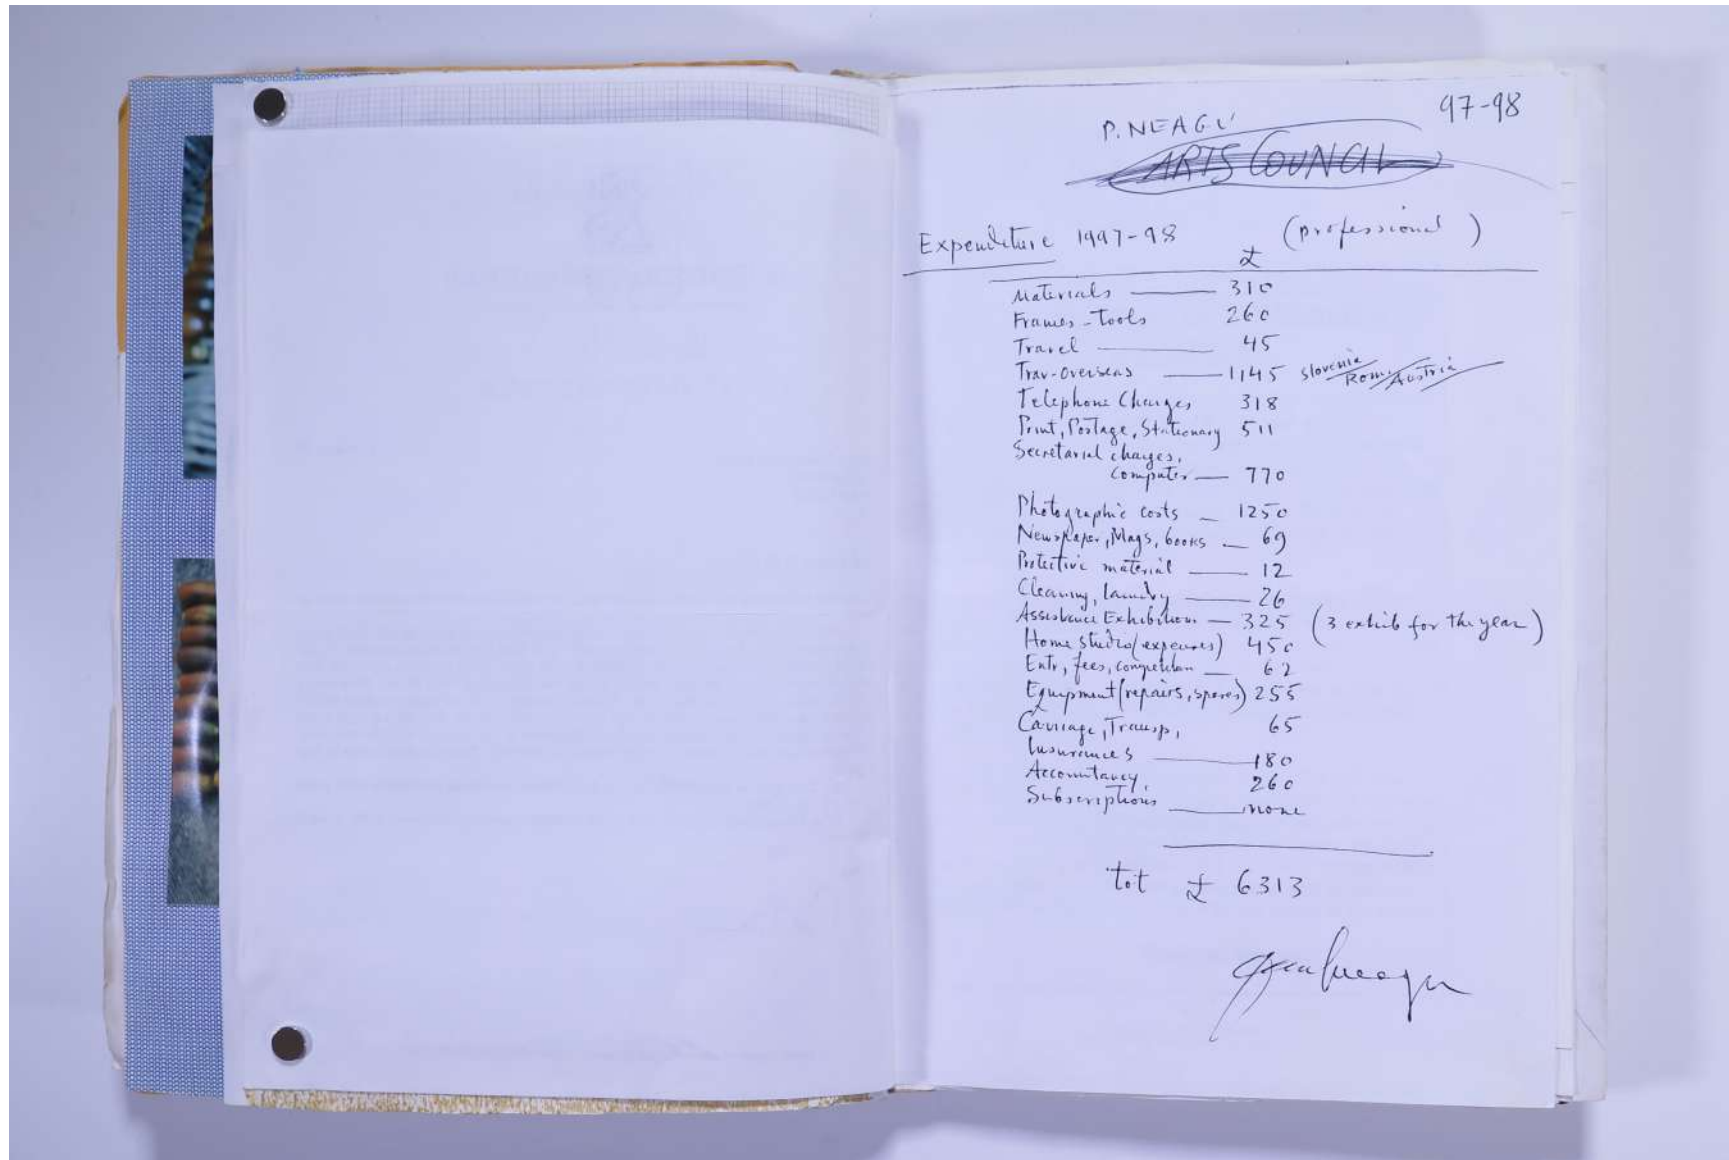 97-98
P. NEAGU
ARTS COUNCIL
Expenditure 1997-98 (professional)
£
Materials — 310
Frames - Tools 260
Travel — 45
Trav-overseas — 1145 Slovenia/Rom./Austria
Telephone Charges 318
Print, Postage, Stationary 511
Secretarial charges,
computer — 770
Photographic costs — 1250
Newspaper, Mags, books — 69
Protective material — 12
Cleaning, laundry — 26
Assistance Exhibition — 325 (3 exhib for the year)
Home studio (expenses) 450
Entr, fees, competition — 62
Equipment (repairs, spares) 255
Carriage, Transp, 65
Insurances — 180
Accountancy 260
Subscriptions — none
tot £ 6313